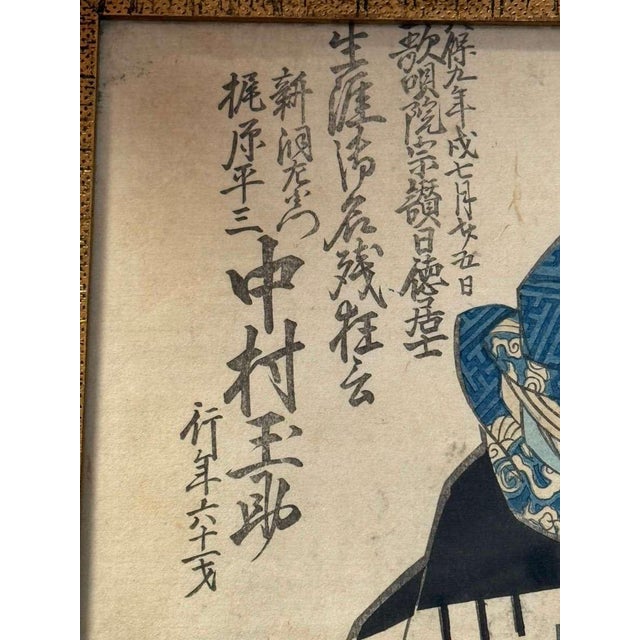 保九年戌七月廿五日
歌唄院宗讃日徳居士
生涯御名残狂言
新洞左衛門
梶原平三
中村玉助
行年六十一才